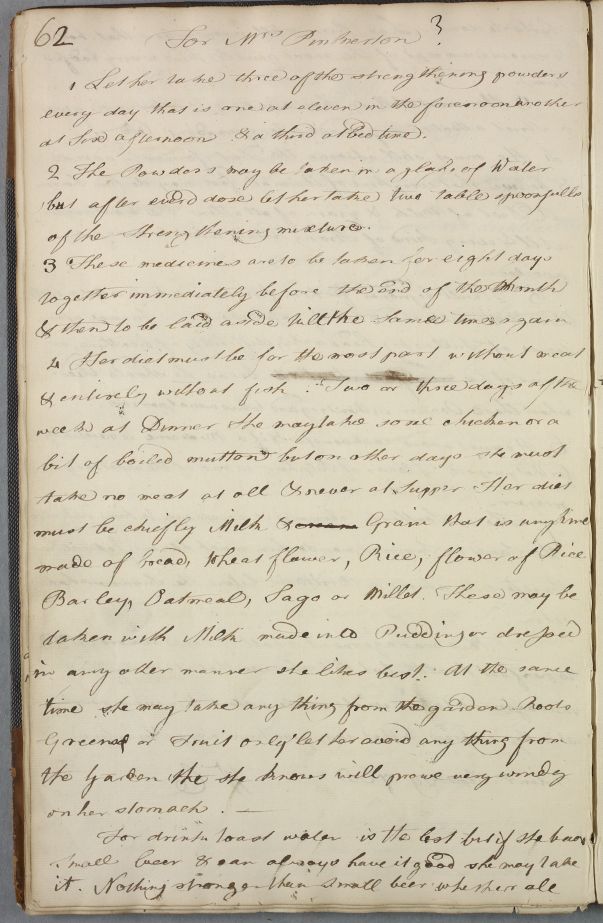 62 For Mrs Pinkerton ?
1 Let her take three of the strengthening powders
every day that is one at eleven in the forenoon another
at Six afternoon & a third at Bed time.
2 The Powders may be taken in a glass of Water
but after every dose let her take two table spoonfulls
of the strengthening mixture.
3 These medicines are to be taken for eight days
together immediately before the end of the Month
& then to be laid aside till the same time again
4 Her diet must be for the most part without meat
& entirely without fish. Two or three days of the
week at Dinner she may take some chicken or a
bit of boiled mutton but on other days she must
take no meat at all & never at Supper Her diet
must be chiefly Milk & Grain that is any time
made of bread, Wheat flower, Rice, flower of Rice
Barley, Oatmeal, Sago or Millet. These may be
taken with Milk made into Pudding or dressed
in any other manner she likes best. At the same
time she may take any thing from the garden Roots
Greens or Fruit only let her avoid any thing from
the Garden she knows will prove very windy
on her stomach. —
For drink toast water is the best but if she
small beer & can always have it good she may take
it. Nothing stronger than small beer whether ale